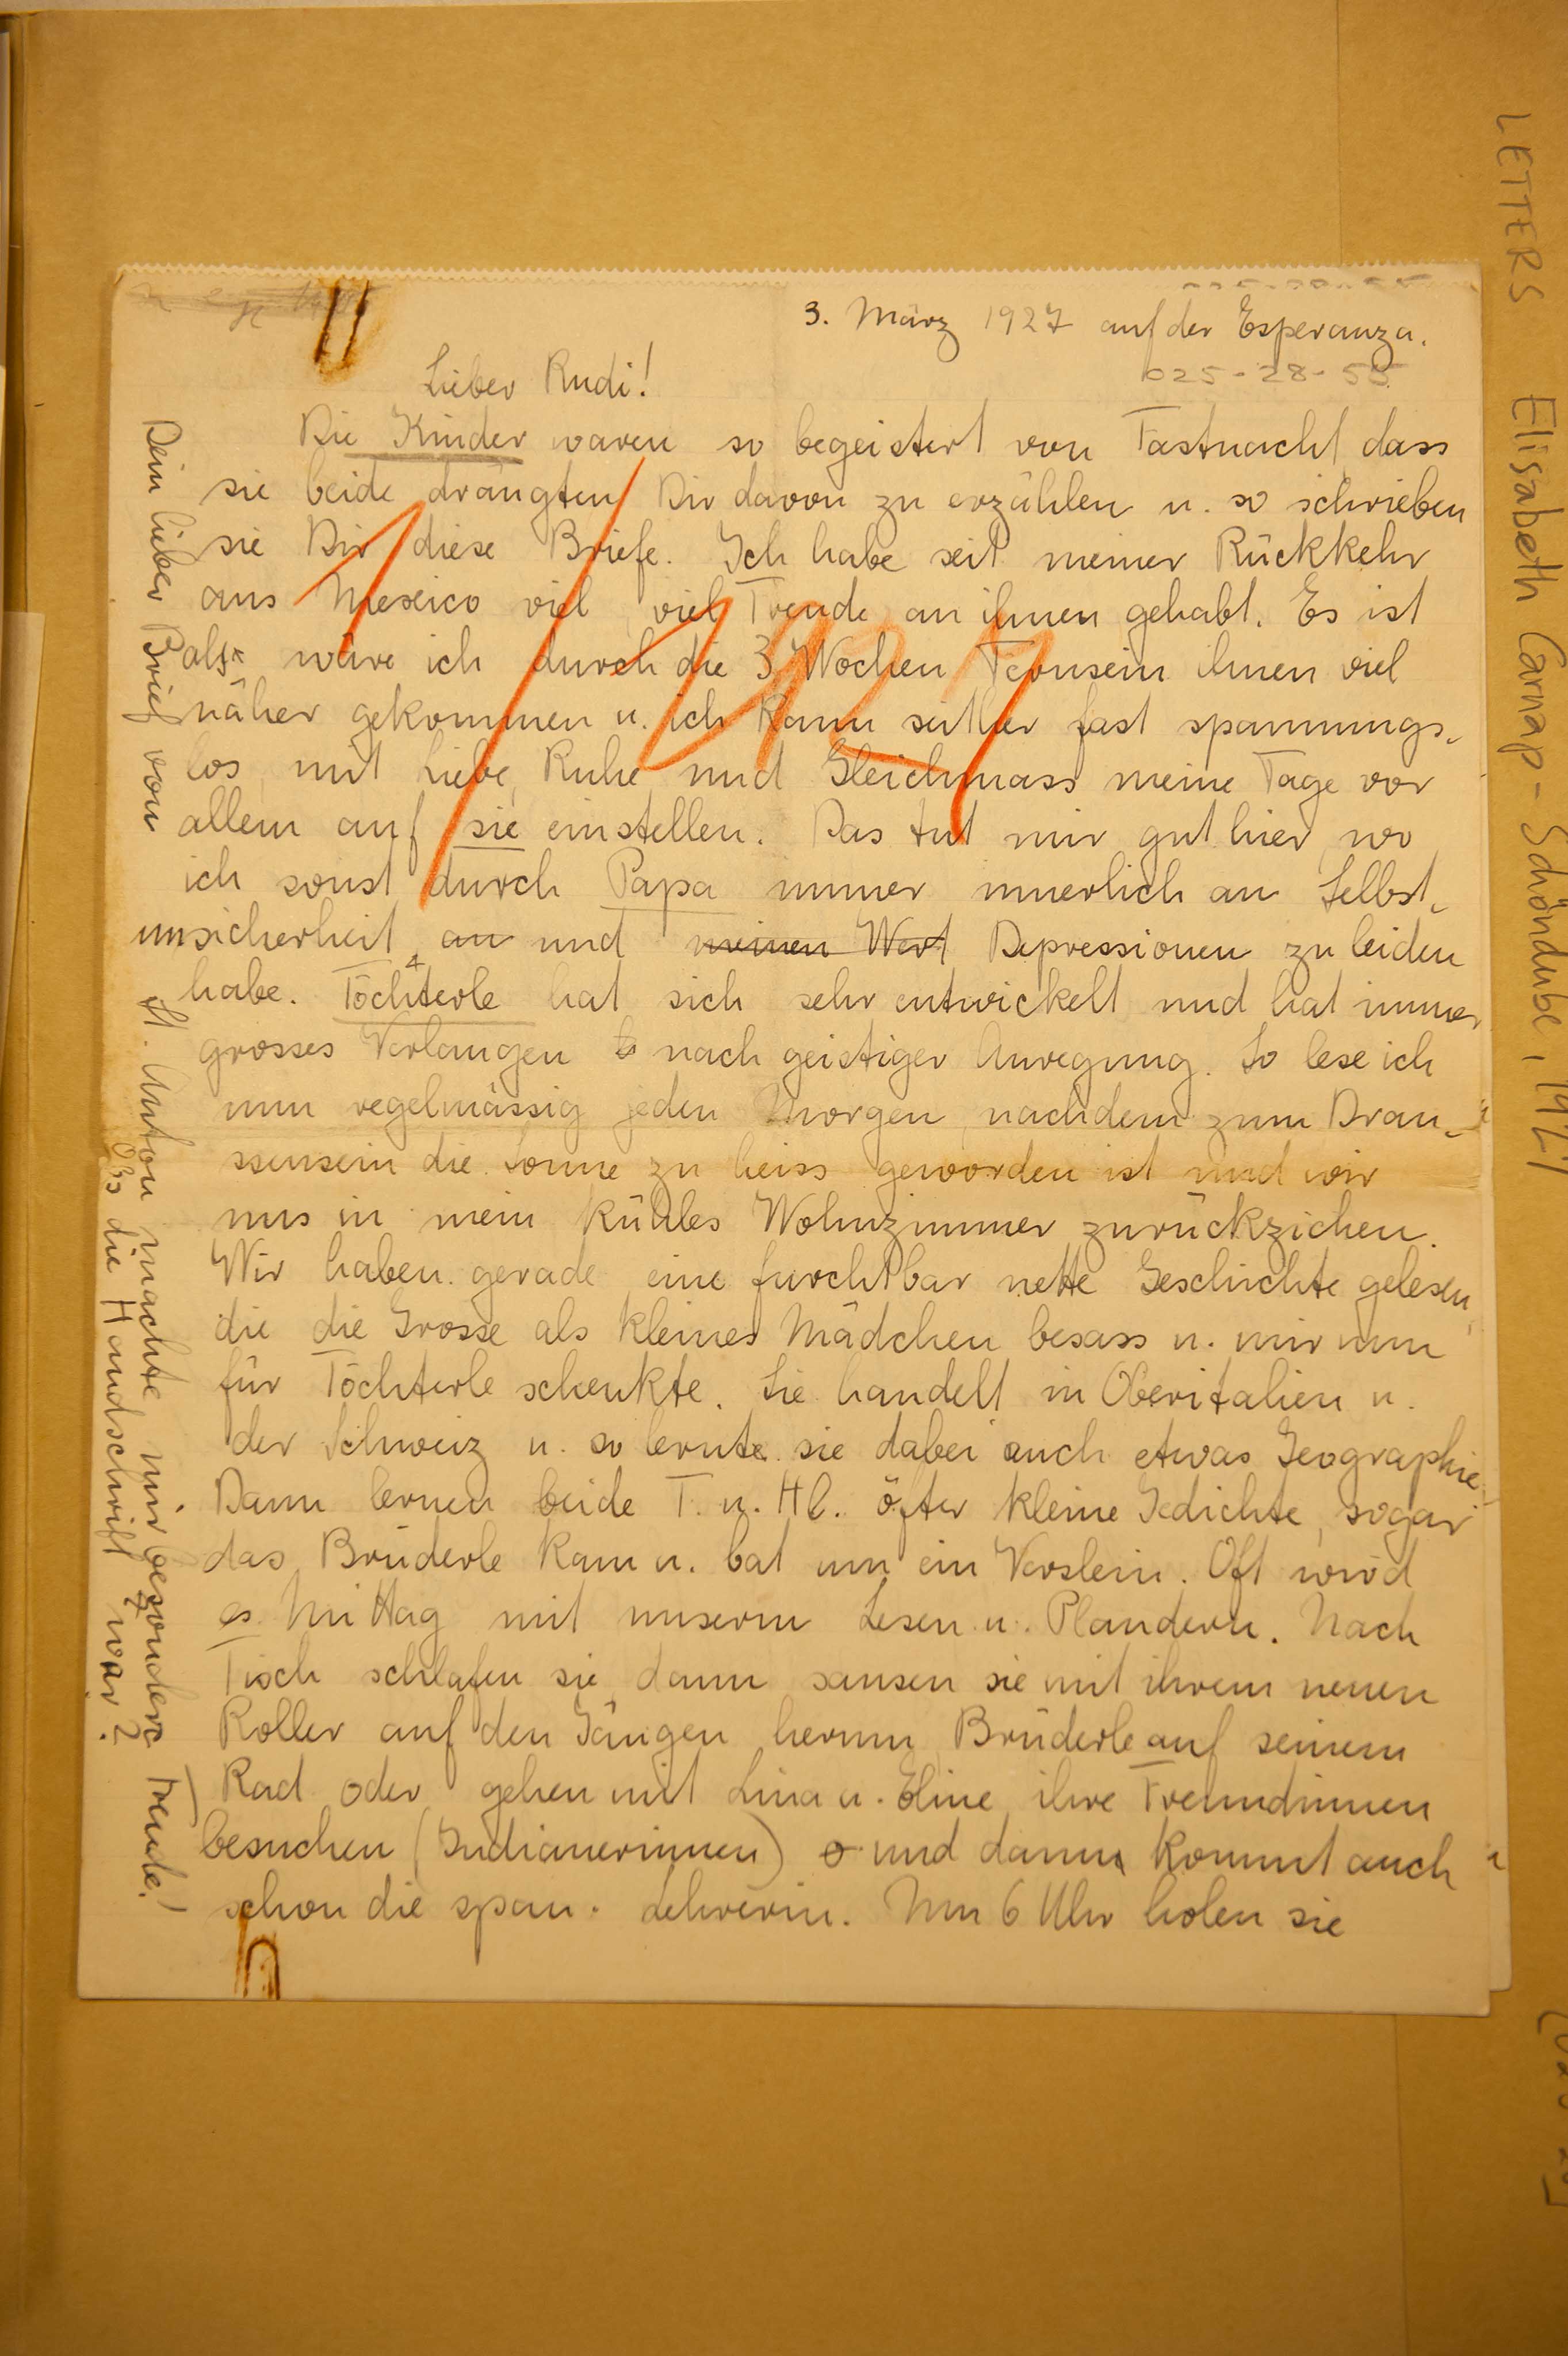 3. März 1927 auf der Esperanza.
025-28-55
Lieber Rudi!
Die Kinder waren so begeistert von Fastnacht dass
sie beide drängten Dir davon zu erzählen u. so schrieben
sie Dir diese Briefe. Ich habe seit meiner Rückkehr
aus Mexico viel viel Freude an ihnen gehabt. Es ist
als wäre ich durch die 3 Wochen Fernsein ihnen viel
näher gekommen u. ich kann seither fast spannungs-
los mit Liebe, Ruhe und Gleichmass meine Tage vor
allem auf sie einstellen. Das tut mir gut hier, wo
ich sonst durch Papa immer innerlich an Selbst-
unsicherheit an und meinen Wert Depressionen zu leiden
habe. Töchterle hat sich sehr entwickelt und hat immer
grosses Verlangen nach geistiger Anregung. So lese ich
nun regelmässig jeden Morgen, nachdem zum Drau-
ssensein die Sonne zu heiss geworden ist und wir
uns in mein kühles Wohnzimmer zurückziehen.
Wir haben gerade eine furchtbar nette Geschichte gelesen,
die die Grosse als kleines Mädchen besass u. mir nun
für Töchterle schenkte. Sie handelt in Oberitalien u.
der Schweiz u. so lernte sie dabei auch etwas Geographie.
Dann lernen beide T. u. Hl. öfter kleine Gedichte, sogar
das Brüderle kam u. bat um ein Verslein. Oft wird
es Mittag mit unserm Lesen u. Plaudern. Nach
Tisch schlafen sie, dann sausen sie mit ihrem neuen
Roller auf den Gängen herum, Brüderle auf seinem
Rad oder gehen mit Lina u. Eline ihre Freundinnen
besuchen (Indianerinnen) und dann kommt auch
schon die span. Lehrerin. Um 6 Uhr holen sie
Dein lieber Brief von
H. Anton machte mir besonders Freude!
Ob's die Handschrift war?
LETTERS Elisabeth Carnap-Schöndube, 1927